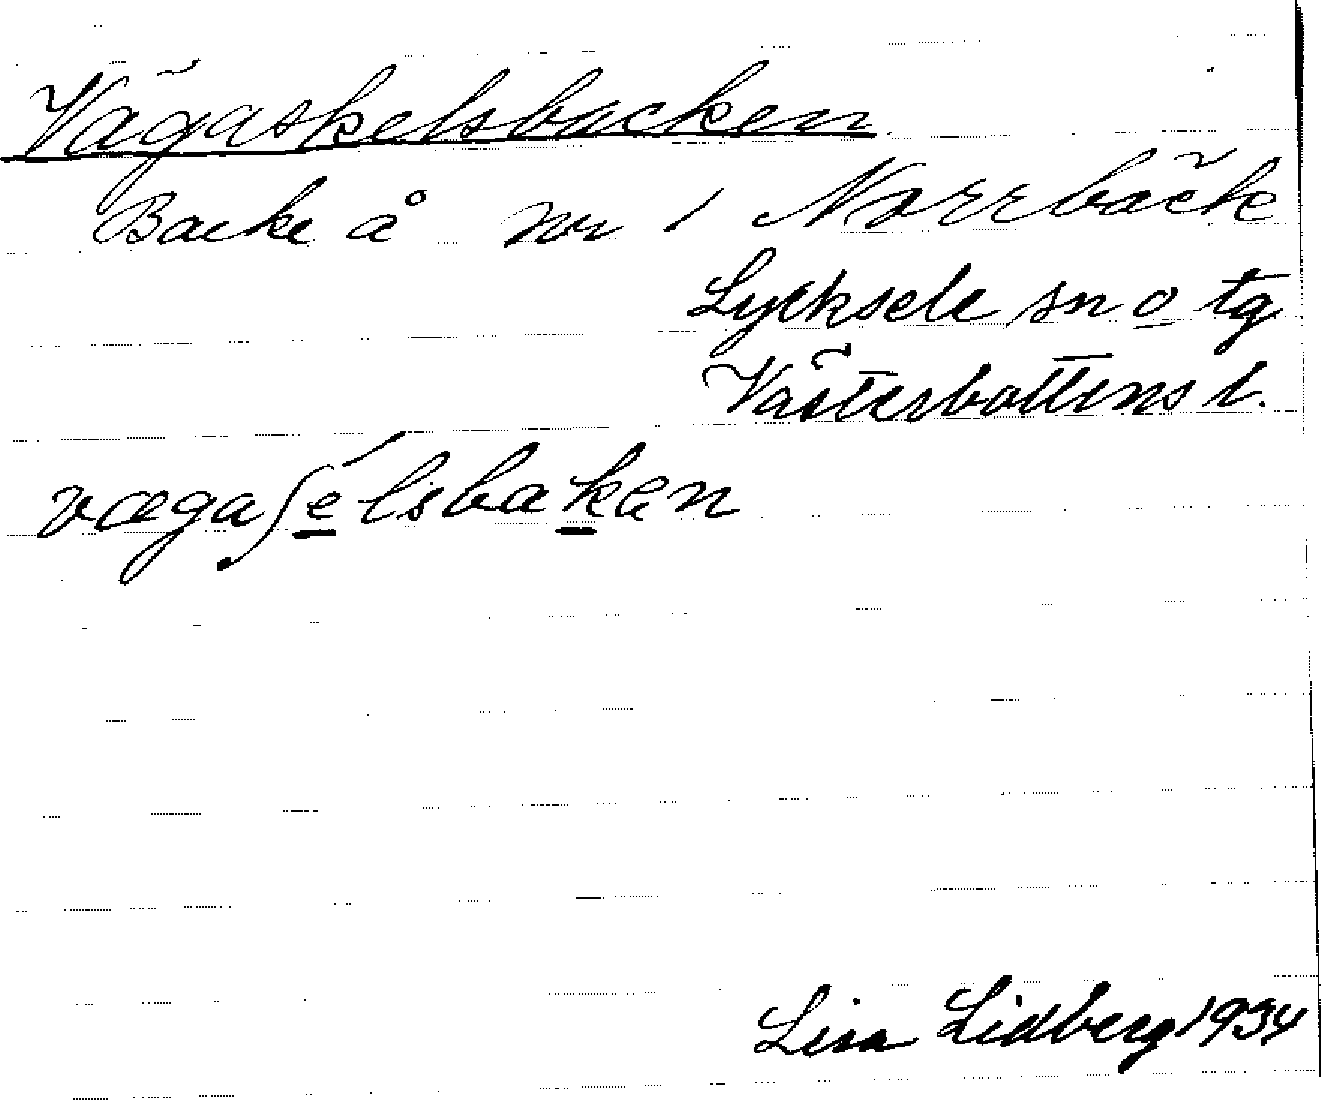 Vägaskelsbacken
Backe å nr 1 Norrbäck
Lycksele sn o tg
Västerbottens l.
vægaʃélsbaken
Lisa Lidberg 1934